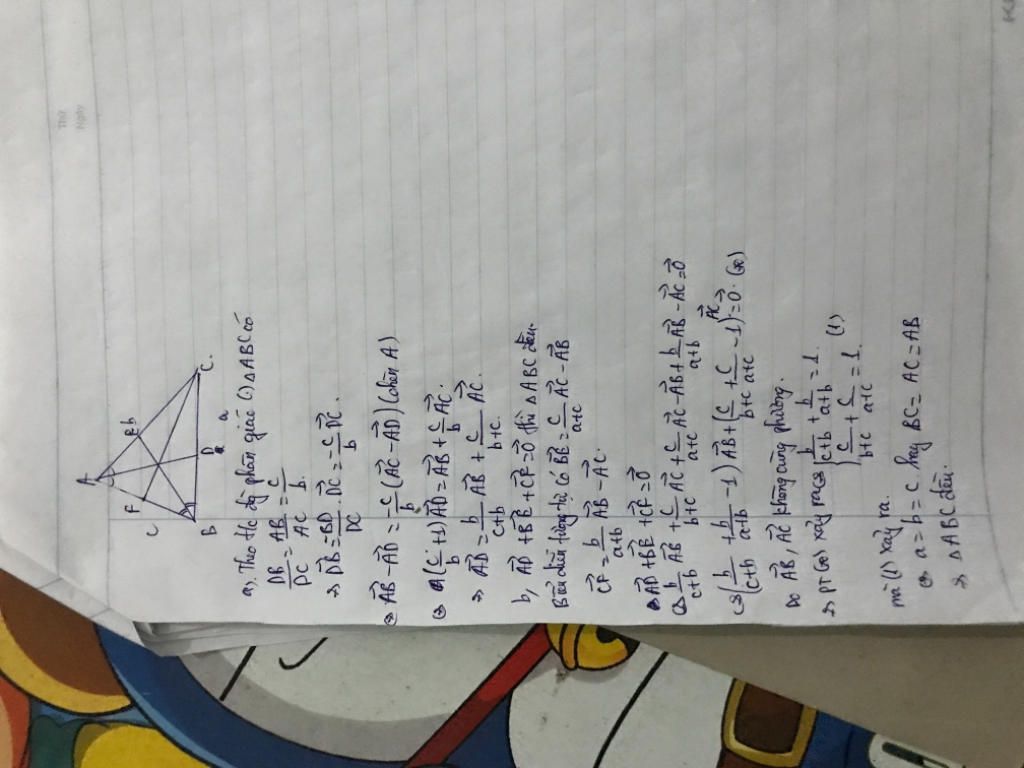 Thứ
Ngày
A
F
E b
c
B
D
a
C
a). Theo t/c đg phân giác (1) ΔABC có
DB/DC = AB/AC = c/b.
⇒ \vec{DB} = BD/DC . \vec{DC} = -c/b \vec{DC}.
⇒ \vec{AB} - \vec{AD} = -c/b (\vec{AC} - \vec{AD}) (chèn A)
⇔ (c/b + 1) \vec{AD} = \vec{AB} + c/b \vec{AC}.
⇒ \vec{AD} = b/(c+b) \vec{AB} + c/(b+c) \vec{AC}.
b, \vec{AD} + \vec{BE} + \vec{CF} = \vec{0} thì ΔABC đều.
Biểu diễn tương tự, có \vec{BE} = c/(a+c) \vec{AC} - \vec{AB}
\vec{CF} = b/(a+b) \vec{AB} - \vec{AC}.
\vec{AD} + \vec{BE} + \vec{CF} = \vec{0}
⇔ b/(c+b) \vec{AB} + c/(b+c) \vec{AC} + c/(a+c) \vec{AC} - \vec{AB} + b/(a+b) \vec{AB} - \vec{AC} = \vec{0}
⇔ (b/(c+b) + b/(a+b) - 1) \vec{AB} + (c/(b+c) + c/(a+c) - 1) \vec{AC} = \vec{0}.
Do \vec{AB}, \vec{AC} không cùng phương.
⇒ PT xảy ra ⇔ { b/(c+b) + b/(a+b) = 1.
c/(b+c) + c/(a+c) = 1. (1)
mà (1) xảy ra.
⇔ a = b = c hay BC = AC = AB
⇒ ΔABC đều.